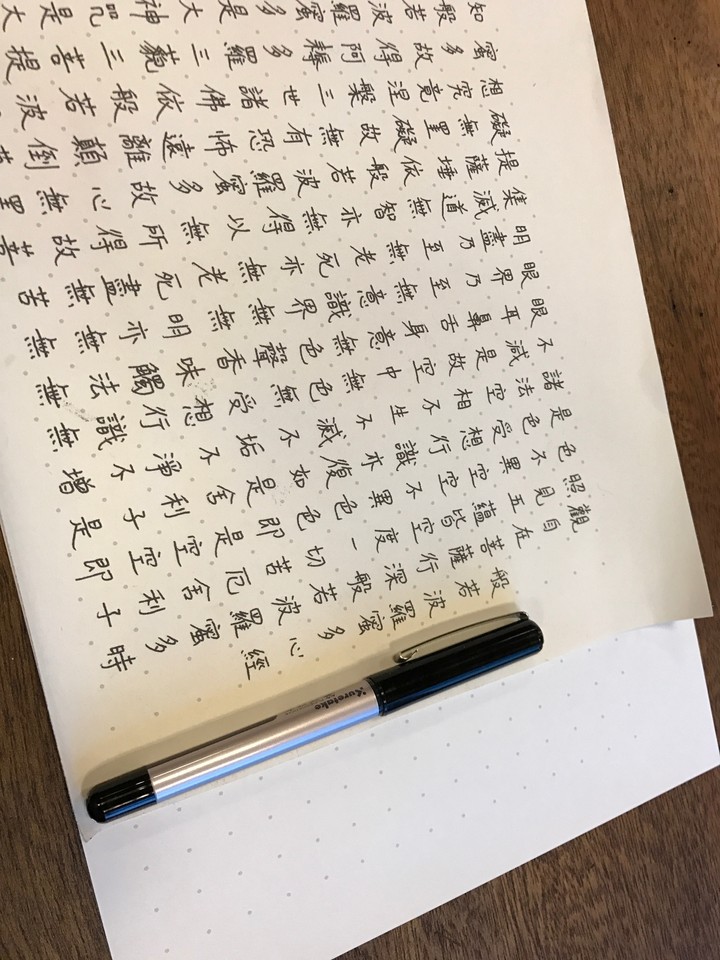 般若波羅蜜多心經
觀自在菩薩行深般若波羅蜜多時
照見五蘊皆空度一切苦厄舍利子
色不異空空不異色色即是空空即
是色受想行識亦復如是舍利子是
諸法空相不生不滅不垢不淨不增
不減是故空中無色無受想行識無
眼耳鼻舌身意無色聲香味觸法無
眼界乃至無意識界無無明亦無無
明盡乃至無老死亦無老死盡無苦
集滅道無智亦無得以無所得故菩
提薩埵依般若波羅蜜多故心無罣
礙無罣礙故無有恐怖遠離顛倒
想究竟涅槃三世諸佛依般若波
蜜多故得阿耨多羅三藐三菩提
知般若波羅蜜多是大神咒是大
Kuretake